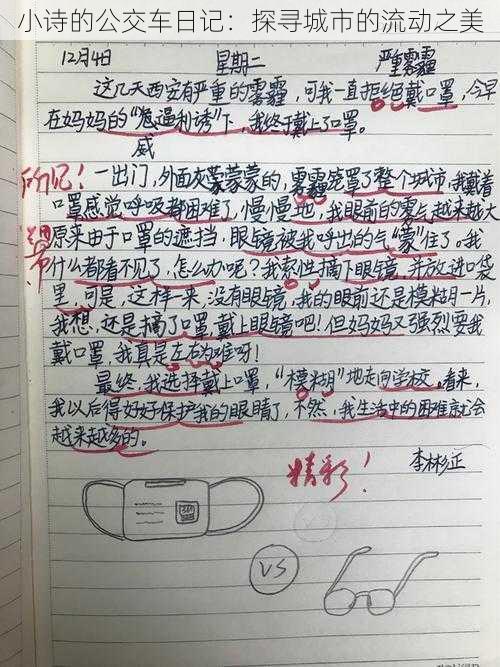 小诗的公交车日记：探寻城市的流动之美
12月4日 星期二 严重雾霾
这几天西安有严重的雾霾，可我一直拒绝戴口罩，今早
在妈妈的“逼利诱”下，我终于戴上了口罩。
威
一出门，外面灰蒙蒙蒙的，雾霾笼罩了整个城市，我戴着
口罩感觉呼吸都困难了，慢慢地，我眼前的雾气越来越大
原来由于口罩的遮挡，眼镜被我呼出的气“蒙”住了。我
什么都看不见了，怎么办呢？我索性摘下眼镜，并放进口袋
里，可是，这样一来，没有眼镜，我的眼前还是模糊一片，
我想，还是摘了口罩，戴上眼镜吧！但妈妈又强烈要我
戴口罩，我真是左右为难呀！
最终，我选择戴上口罩，“模糊”地走向学校。看来，
我以后得好好保护我的眼睛了，不然，我生活中的困难就会
越来越多的。
精彩！
李林杉正
VS